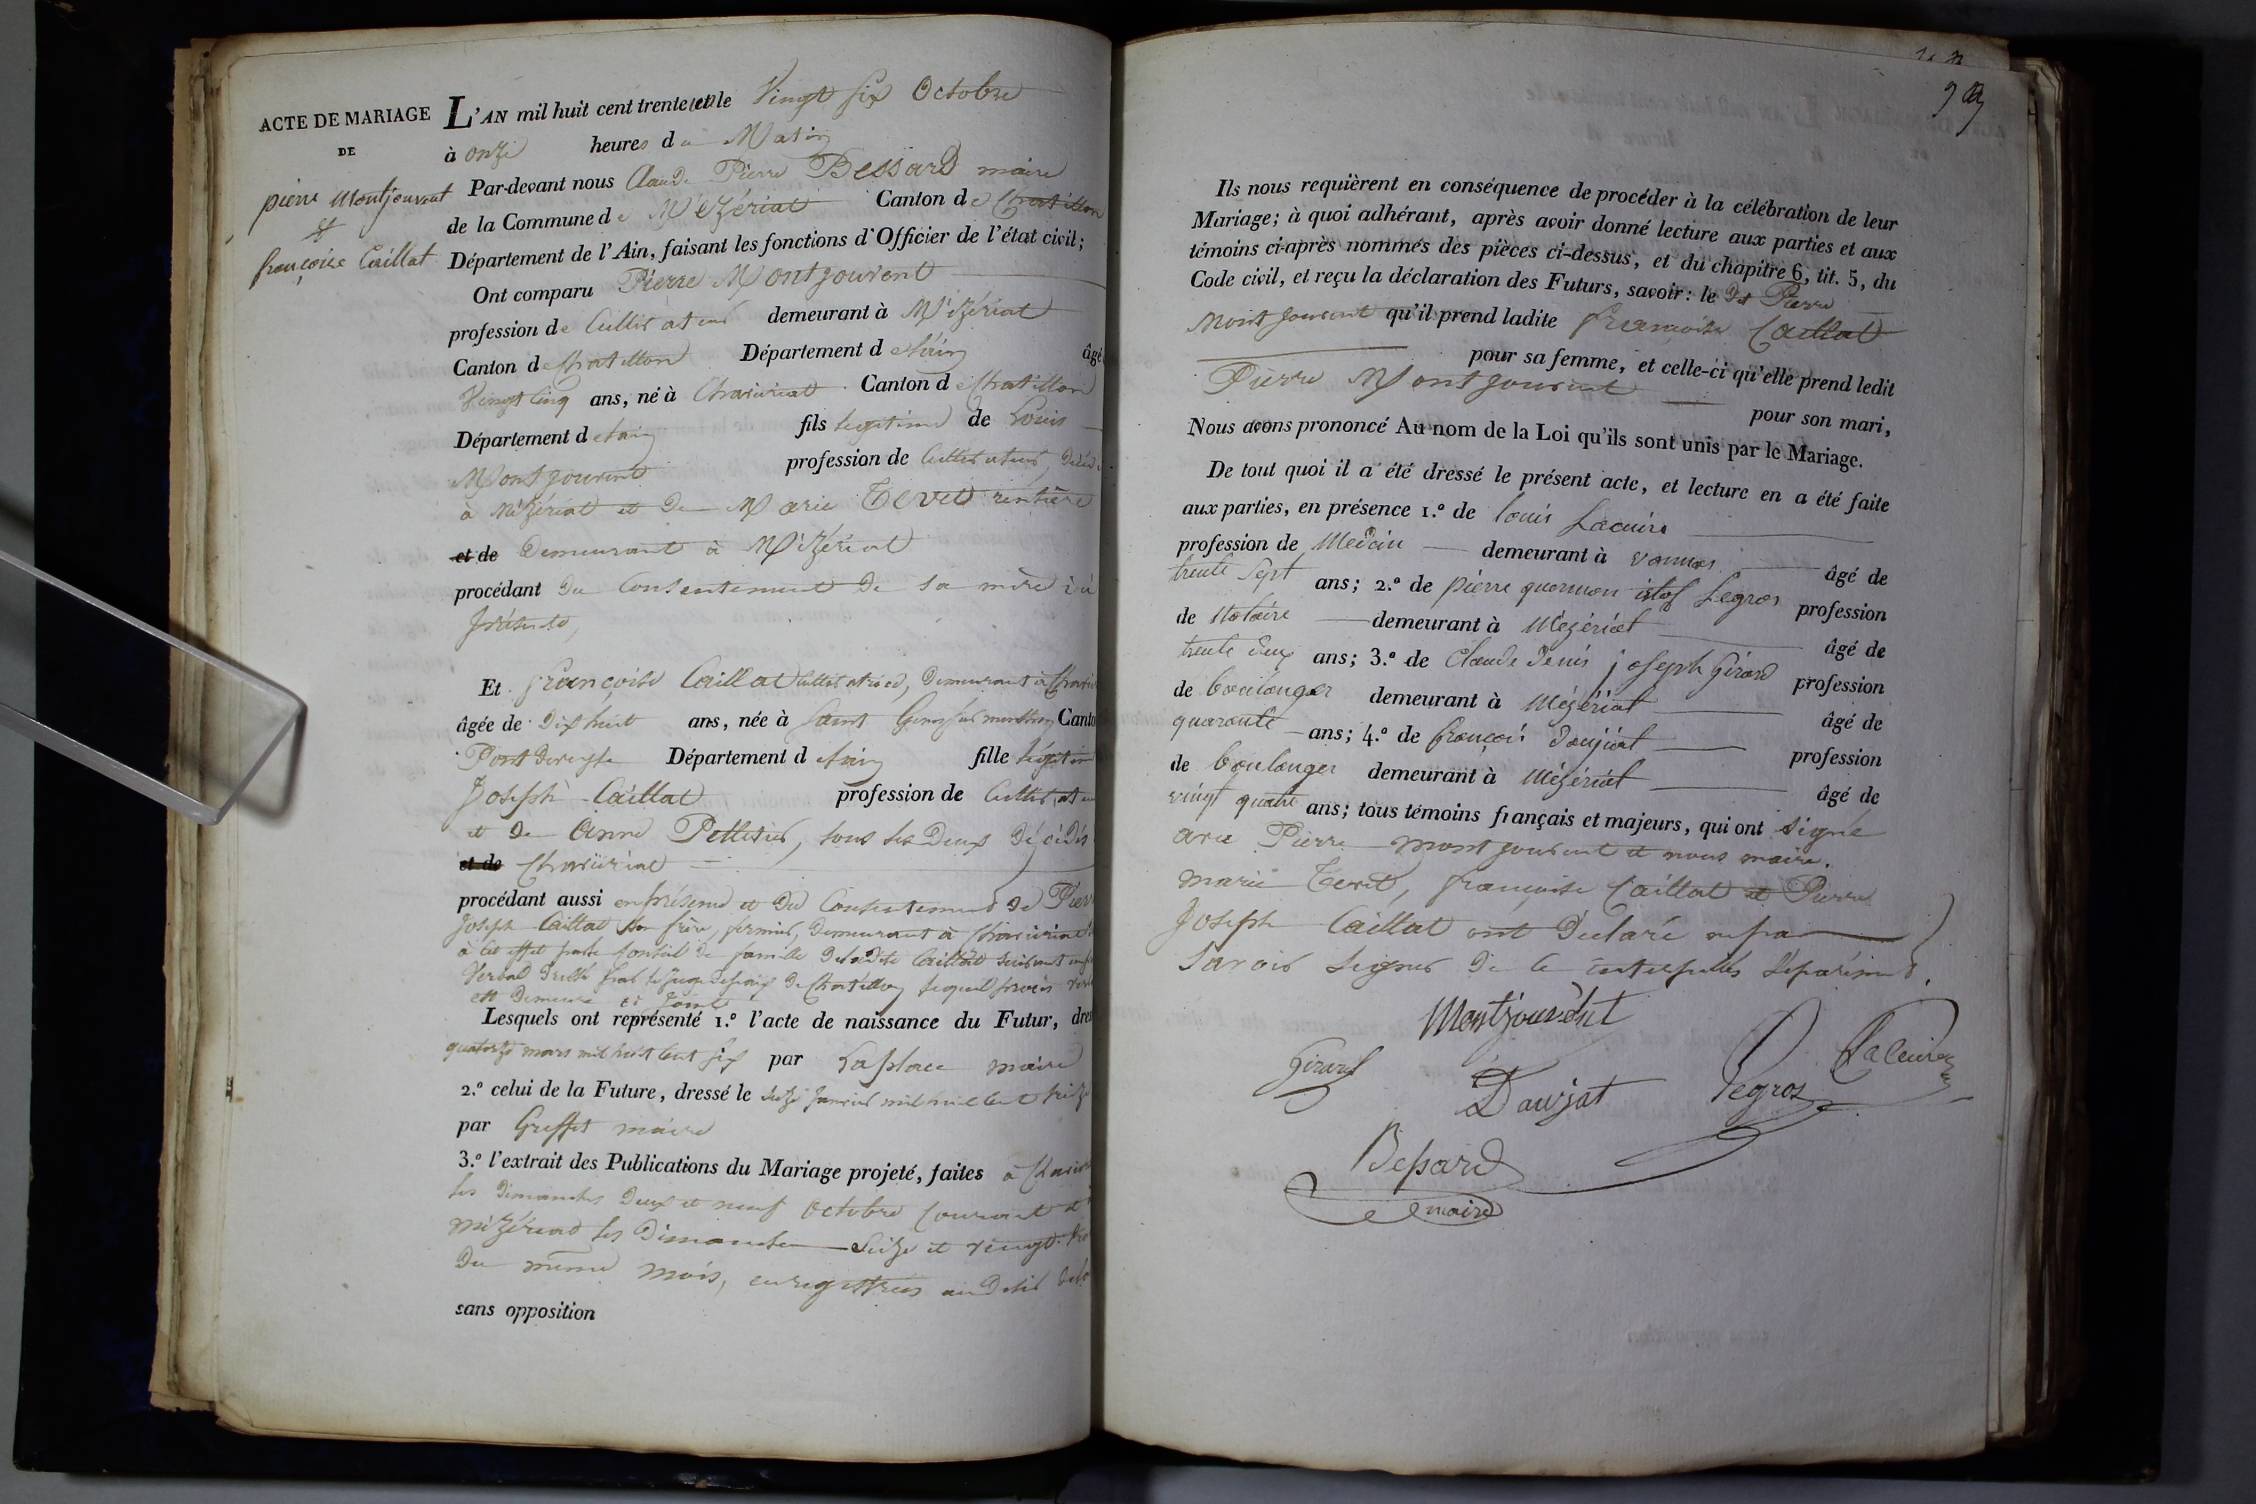 ACTE DE MARIAGE
DE
pierre Montjouvent
et
françoise Caillat
L'AN mil huit cent trente et un le Vingt six Octobre
à onze heures du Matin
Par-devant nous Claude Pierre Bessard maire
de la Commune de Mézériat Canton de Chatillon
Département de l'Ain, faisant les fonctions d'Officier de l'état civil;
Ont comparu Pierre Montjouvent
profession de Cultivateur demeurant à Mézériat
Canton de Chatillon Département de l'ain âgé
Vingt Cinq ans, né à Chaveyriat Canton de Chatillon
Département de l'ain fils légitime de Louis
Montjouvent profession de Cultivateur, décédé
à Mézériat et de Marie Tevet rentière
et de Demeurant à Mézériat
procédant du Consentement de sa mère ici
présente,
Et françoise Caillat Cultivatrice, demeurant à
âgée de Dix huit ans, née à Saint Genis sur menthon Canton
Pont de veyle Département de l'ain fille légitime
Joseph Caillat profession de Cultivateur
et de Anne Pelletier, tous les Deux Décédés
et de
procédant aussi en présence et du Consentement de Pierre
Joseph Caillat son frère, fermier, Demeurant à
à cet effet par le Conseil de famille de ladite Caillat suivant
Verbal Dressé par le juge de paix de Chatillon lequel procès
est Demeuré ci joint
Lesquels ont représenté 1.º l'acte de naissance du Futur,
quatorze mars mil huit cent six par Laplace maire
2.º celui de la Future, dressé le janvier mil huit cent treize
par Greffet maire
3.º l'extrait des Publications du Mariage projeté, faites à
les Dimanches Deux et neuf Octobre Courant et à
Mézériat les Dimanches Seize et vingt trois
Du même mois, enregistrées
sans opposition
Ils nous requièrent en conséquence de procéder à la célébration de leur
Mariage; à quoi adhérant, après avoir donné lecture aux parties et aux
témoins ci-après nommés des pièces ci-dessus, et du chapitre 6, tit. 5, du
Code civil, et reçu la déclaration des Futurs, savoir: le dt Pierre
Montjouvent qu'il prend ladite françoise Caillat
pour sa femme, et celle-ci qu'elle prend ledit
Pierre Montjouvent pour son mari,
Nous avons prononcé Au nom de la Loi qu'ils sont unis par le Mariage.
De tout quoi il a été dressé le présent acte, et lecture en a été faite
aux parties, en présence 1.º de louis Lacuire
profession de Medecin demeurant à vonnas âgé de
trente sept ans; 2.º de pierre Legros profession
de Notaire demeurant à Mézériat âgé de
trente deux ans; 3.º de Claude Denis joseph Girard profession
de boulanger demeurant à Mézériat âgé de
quarante ans; 4.º de françois Daujat profession
de boulanger demeurant à Mézériat âgé de
vingt quatre ans; tous témoins français et majeurs, qui ont signé
avec Pierre Montjouvent et nous maire.
Marie Tevet, françoise Caillat et Pierre
Joseph Caillat ont Déclaré ne pas
Savoir Signer De ce interpellés séparément.
Montjouvent
Girard Daujat Legros Lacuire
Bessard
maire